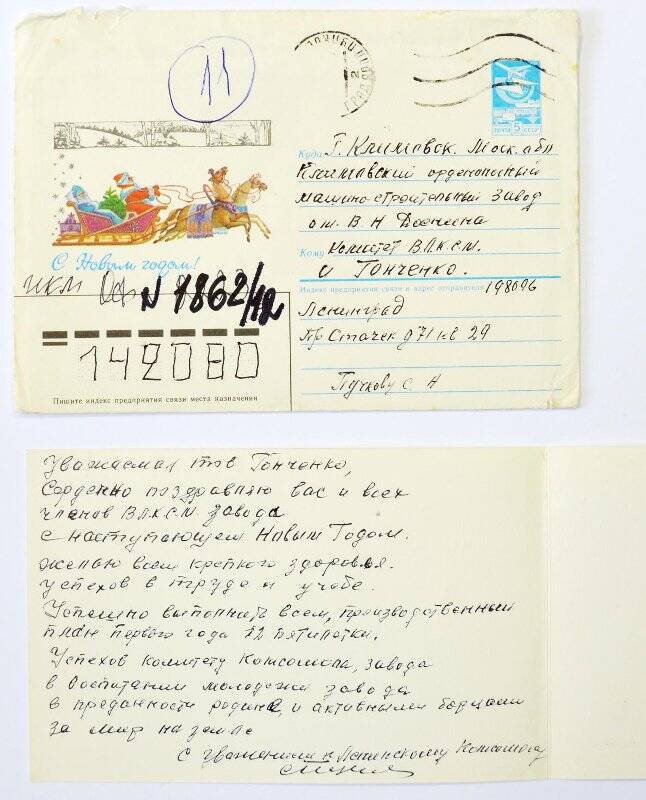 11
ПОЧТА 5К СССР
Куда г. Климовск. Моск. абл
Климовский орденоносный
машино-строительный Завод
Кому Комитет ВЛКСМ.
Гонченко.
Индекс предприятия связи и адрес отправителя 198096
Ленинград
пр Стачек д 71 кв 29
Пучкову С. Н
С Новым годом!
ИКМ Оф N 1862/42
142080
Пишите индекс предприятия связи места назначения
Уважаемая тов Гонченко,
Сердечно поздравляю вас и всех
членов ВЛКСМ завода
с наступающем Новым Годом.
желаю всем крепкого здоровья.
успехов в труде и учебе.
Успешно выполнить всем, производственный
план первого года 12 пятилетки.
Успехов комитету Комсомола, завода
в воспитании молодежи завода
в преданности родине, и активными борцами
за мир на земле
С уважением к Ленинскому Комсомолу